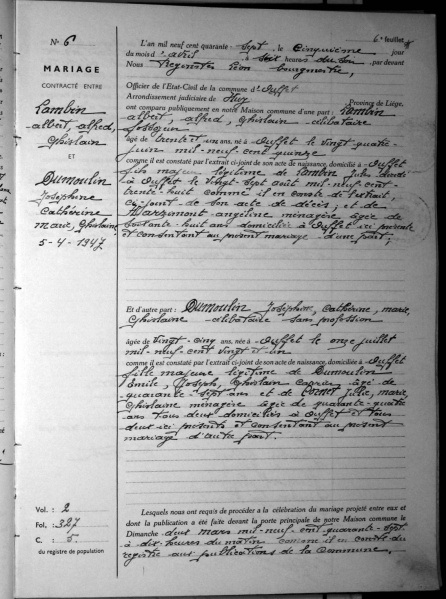 6e feuillet
N° 6
MARIAGE
CONTRACTÉ ENTRE
Lambin
albert, alfred,
Ghislain
ET
Dumoulin
Joséphine
Cathérine
marie, Ghislaine
5-4-1947
L'an mil neuf cent quarante-sept, le cinquième jour
du mois d'avril à heures du soir, par devant
Nous Léon bourgmestre,
Officier de l'Etat-Civil de la commune d'Ouffet
Arrondissement judiciaire de Huy Province de Liège,
ont comparu publiquement en notre Maison commune d'une part: Lambin
albert, alfred, Ghislain célibataire
âgé de trente et un ans, né à Ouffet le vingt-quatre
juin mil neuf-cent quinze
comme il est constaté par l'extrait ci-joint de son acte de naissance, domicilié à Ouffet
fils majeur légitime de Lambin Jules décédé
à Ouffet le vingt-sept août mil-neuf-cent-
trente-huit comme il en conste de l'extrait,
ci-joint de son acte de décès, et de
angeline ménagère âgée de
soixante-huit ans domiciliée à Ouffet ici présente
et consentant au présent mariage d'une part;
Et d'autre part: Dumoulin Joséphine, Cathérine, marie,
Ghislaine célibataire sans profession
âgée de vingt-cinq ans, née à Ouffet le onze juillet
mil-neuf-cent vingt et un
comme il est constaté par l'extrait ci-joint de son acte de naissance, domiciliée à Ouffet
fille majeure légitime de Dumoulin
Emile, Joseph, Ghislain âgé de
quarante-sept ans et de Julie, marie
Ghislaine ménagère âgée de quarante-quatre
ans tous deux domiciliés à Ouffet et tous
deux ici présents et consentant au présent
mariage d'autre part.
Vol.: 2
Fol.: 327
C.: 5.
du registre de population
Lesquels nous ont requis de procéder à la célébration du mariage projeté entre eux et
dont la publication a été faite devant la porte principale de notre Maison commune le
Dimanche deux mars mil-neuf-cent quarante-sept
à dix-heures du matin comme il en conste du
registre aux publications de la Commune.